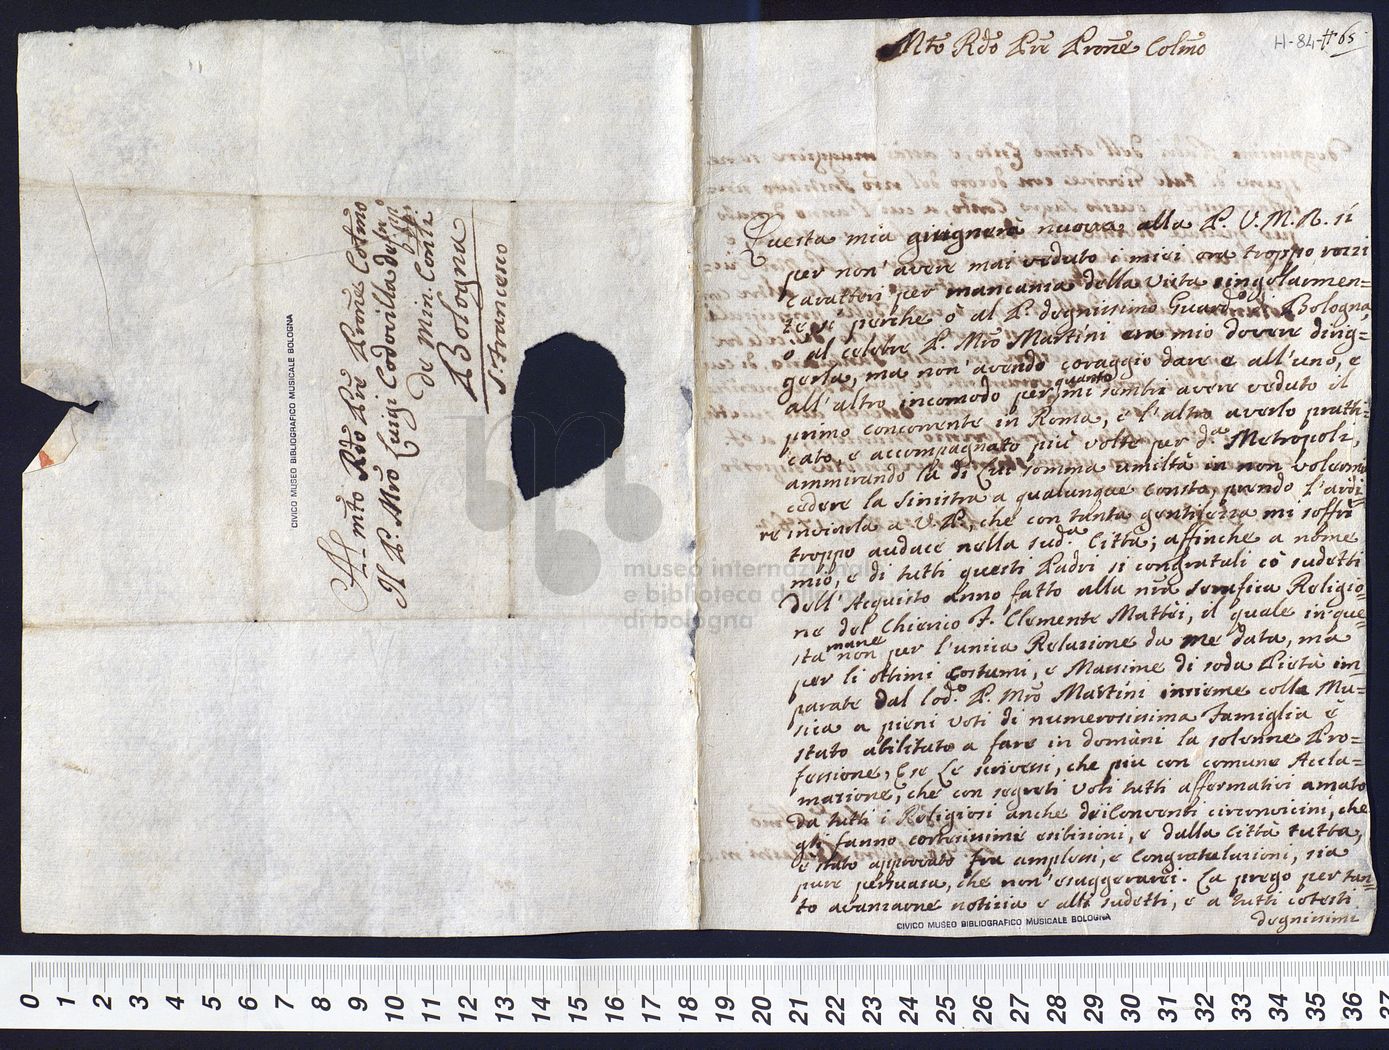 Al mto Rdo Pre Prone Colmo
Il P. Mro Luigi Codovilla de
de Min. Conti
Bologna
S. Francesco
CIVICO MUSEO BIBLIOGRAFICO MUSICALE BOLOGNA
H-84- 65
Mto Rdo Pre Prone Colmo
Questa mia giugnerà nuova alla P. V. M. R. sì
per non' avere mai veduto i miei ora troppo rozzi
caratteri per mancanza della vista singolarmen=
te, sì perche o' al P. degnissimo Guardo di Bologna,
o al celebre P. Mro Martini era mio dovere dirig=
gerla, ma non' avendo coraggio dare e all'uno, e
all'altro incomodo per quanto mi sembri avere veduto il
primo concorrente in Roma, e l'altro averlo pratti=
cato, e accompagnato più volte per da Metropoli,
ammirando la di Lui somma umiltà in non volermi
cedere la sinistra a qualunque costo, prendo l'ardi=
re inviarla a V. P., che con tanta gentilezza mi soffrì
troppo audace nella suda Città; affinche a nome
mio, e di tutti questi Padri si congratuli co' sudetti
dell'Acquisto anno fatto alla nra Serafica Religio=
ne del Chierico F. Clemente Mattei, il quale in que=
sta mane non per l'unica Relazione da me data, ma
per li ottimi costumi, e Massime di soda Pietà im=
parate dal lodo P. Mro Martini insieme colla Mu=
sica a pieni voti di numerosissima Famiglia è
stato abilitato a fare in domani la solenne Pro=
fessione, Ese Le scrivessi, che più con comune Accla=
mazione, che con segreti voti tutti affermativi amato
da tutti i Religiosi anche dei Conventi circonvicini, che
gli fanno cortesissime esibizioni, e dalla Città tutta,
è stato approvato fra amplessi, e Congratulazioni, sia
pure persuasa, che non' esaggerarei. La prego per tan=
to avanzarne notizia e alli sudetti, e a tutti cotesti
degnissimi
CIVICO MUSEO BIBLIOGRAFICO MUSICALE BOLOGNA
museo internazionale
e biblioteca della musica
di bologna
0 1 2 3 4 5 6 7 8 9 10 11 12 13 14 15 16 17 18 19 20 21 22 23 24 25 26 27 28 29 30 31 32 33 34 35 36 37